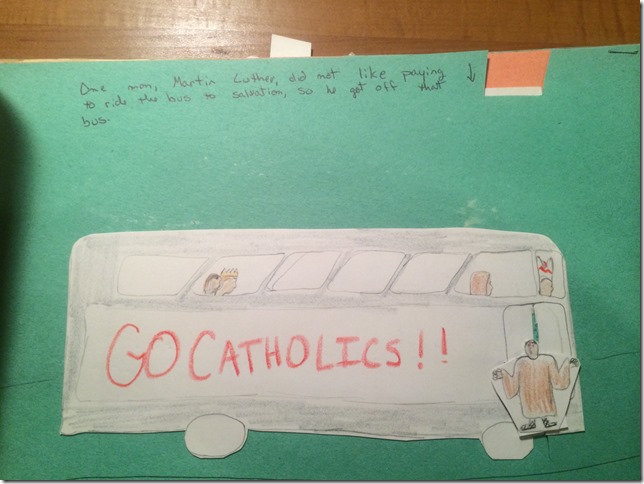 One man, Martin Luther, did not like paying
to ride the bus to salvation, so he got off that
bus.
GO CATHOLICS!!